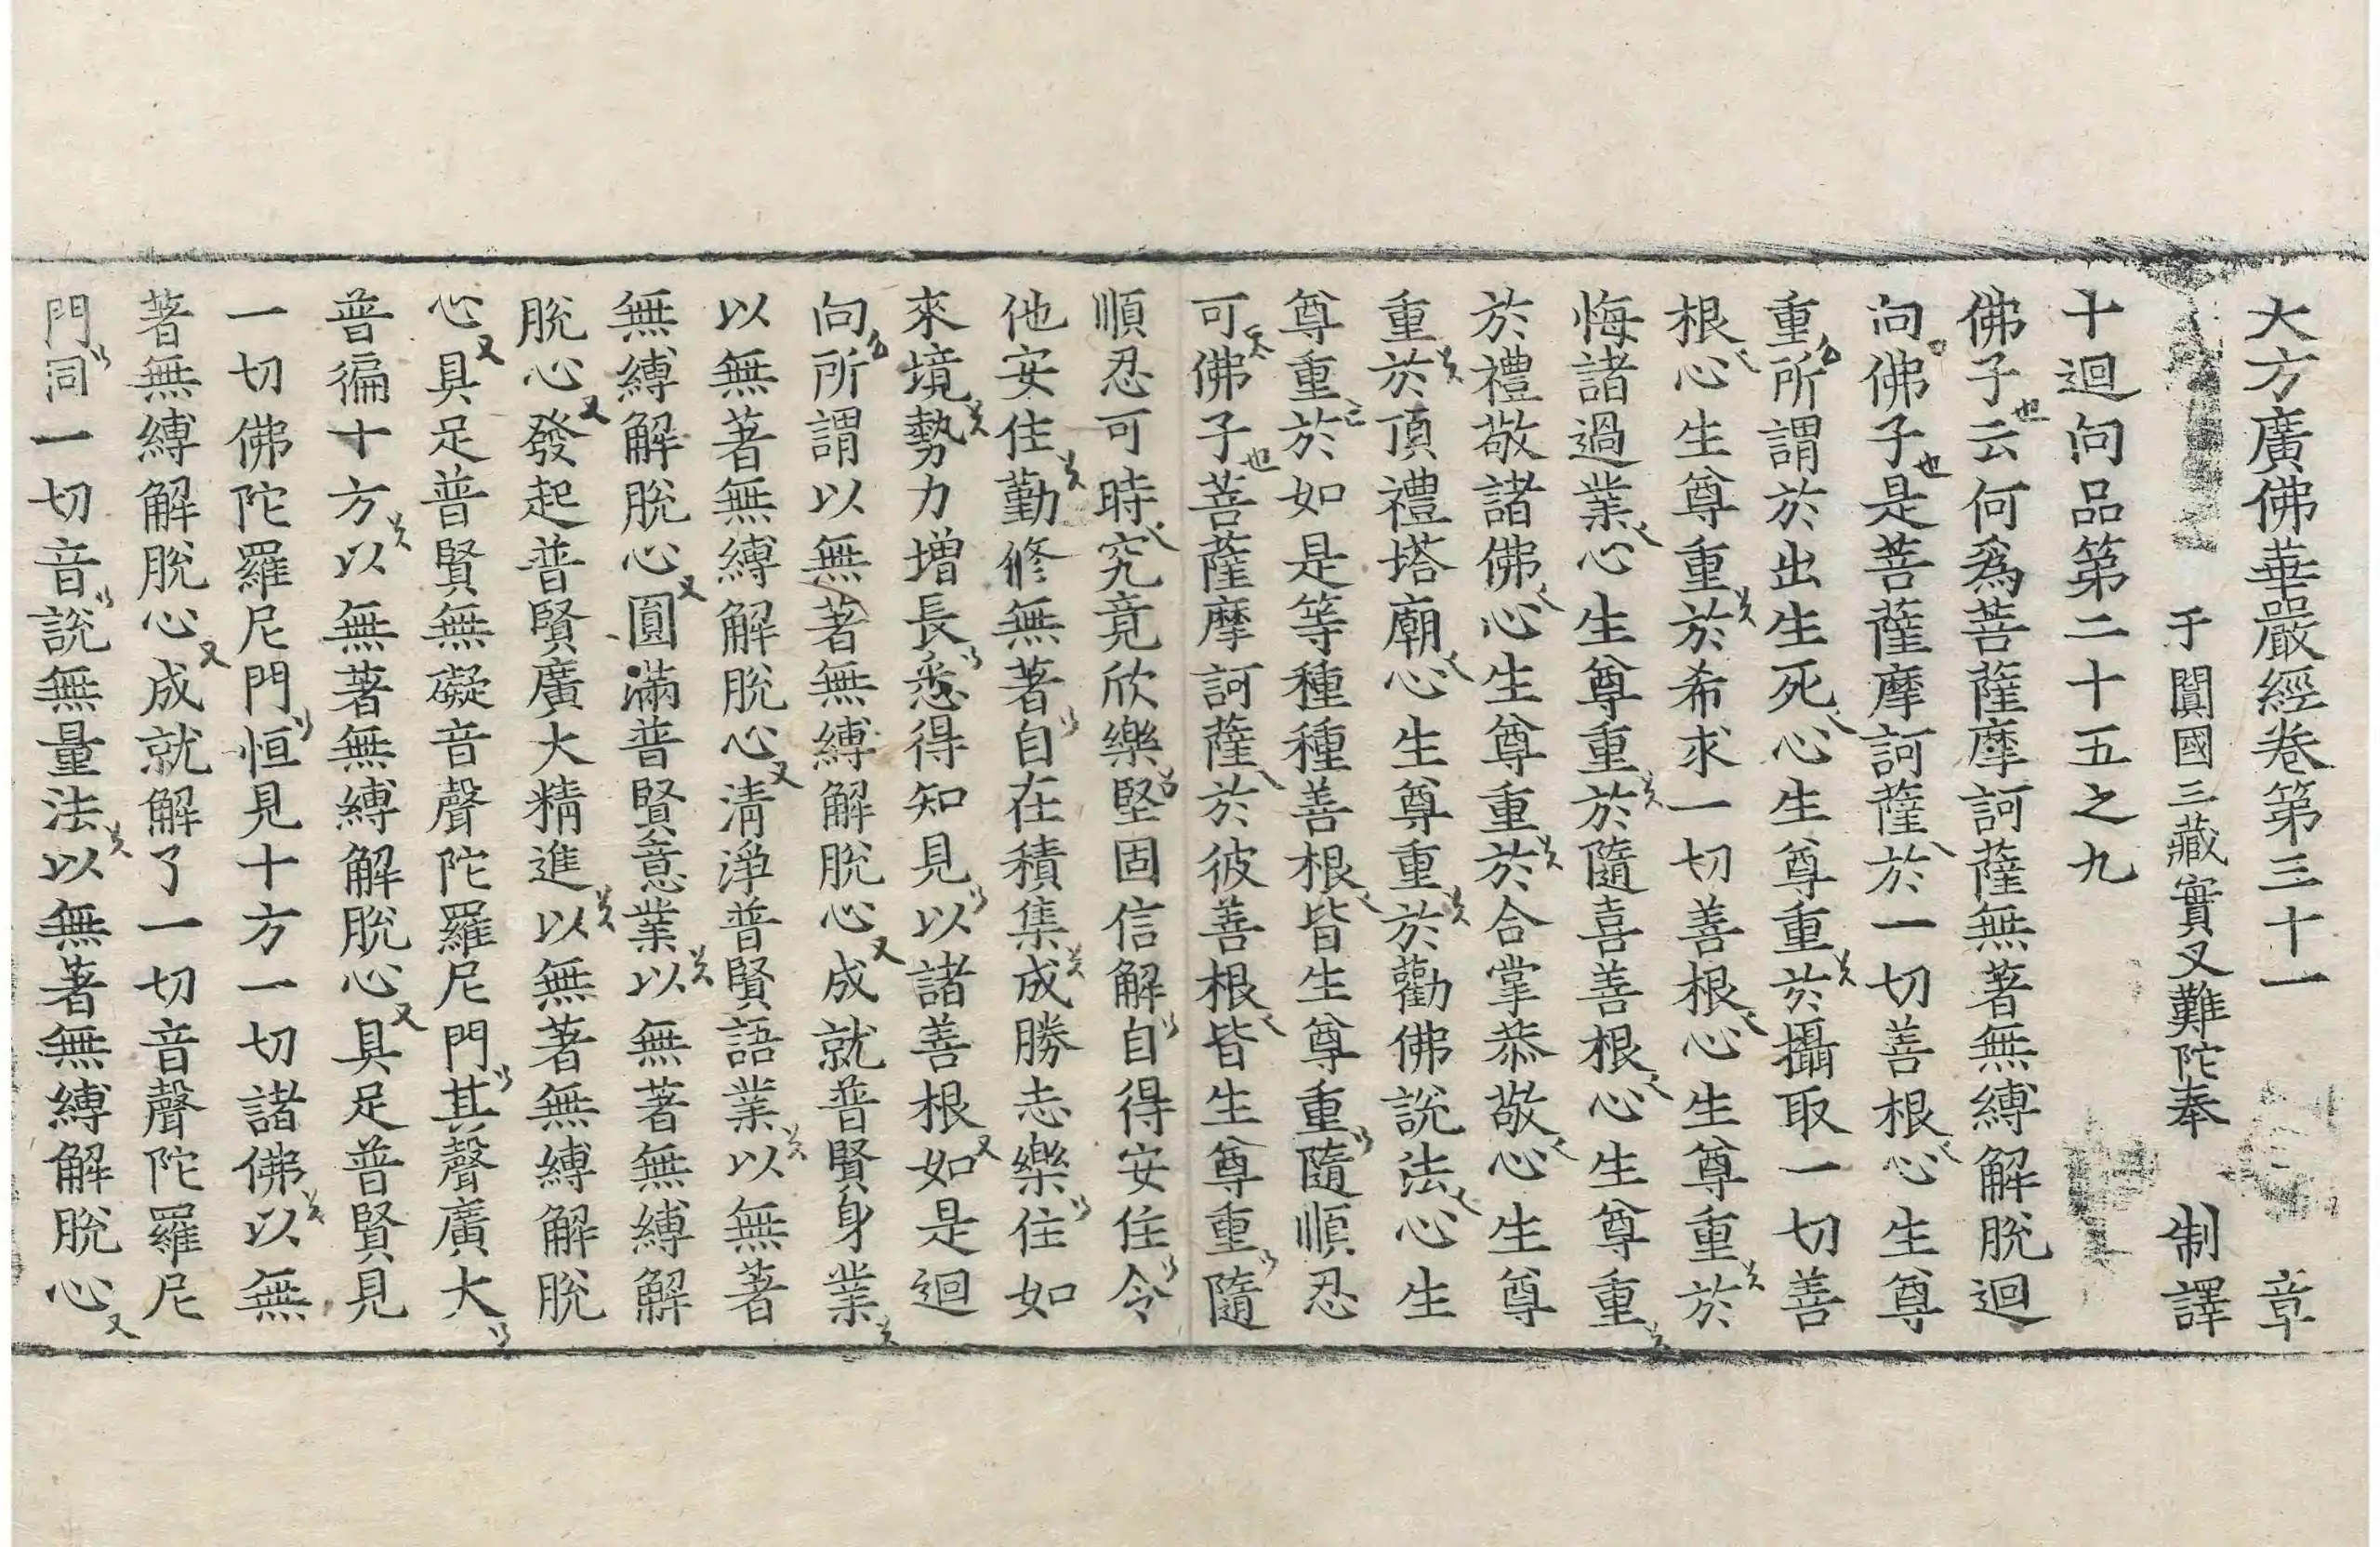 大方廣佛華嚴經卷第三十一 章
于闐國三藏實叉難陀奉 制譯
十迴向品第二十五之九
佛子云何爲菩薩摩訶薩無著無縛解脫迴
向佛子是菩薩摩訶薩於一切善根心生尊
重所謂於出生死心生尊重於攝取一切善
根心生尊重於希求一切善根心生尊重於
悔諸過業心生尊重於隨喜善根心生尊重
於禮敬諸佛心生尊重於合掌恭敬心生尊
重於頂禮塔廟心生尊重於勸佛說法心生
尊重於如是等種種善根皆生尊重隨順忍
可佛子菩薩摩訶薩於彼善根皆生尊重隨
順忍可時究竟欣樂堅固信解自得安住令
他安住勤修無著自在積集成勝志樂住如
來境勢力增長悉得知見以諸善根如是迴
向所謂以無著無縛解脫心成就普賢身業
以無著無縛解脫心清淨普賢語業以無著
無縛解脫心圓滿普賢意業以無著無縛解
脫心發起普賢廣大精進以無著無縛解脫
心具足普賢無礙音聲陀羅尼門其聲廣大
普徧十方以無著無縛解脫心具足普賢見
一切佛陀羅尼門恒見十方一切諸佛以無
著無縛解脫心成就解了一切音聲陀羅尼
門同一切音說無量法以無著無縛解脫心